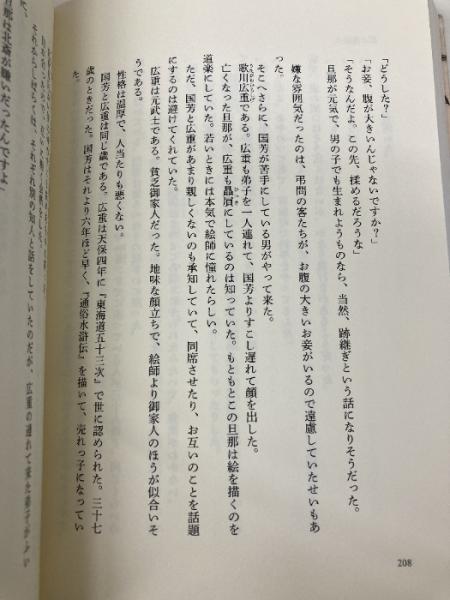 「どうした?」
「お妾、腹が大きいんじゃないですか?」
「そうなんだよ。この先、揉めるだろうな」
旦那が元気で、男の子でも生まれようものなら、当然、跡継ぎという話になりそうだった。
嫌な雰囲気だったのは、弔問の客たちが、お腹の大きいお妾がいるので遠慮していたせいもあ
った。
そこへさらに、国芳が苦手にしている男がやって来た。
歌川広重である。広重も弟子を一人連れて、国芳よりすこし遅れて顔を出した。
亡くなった旦那が、広重も贔屓にしているのは知っていた。もともとこの旦那は絵を描くのを
道楽にしていた。若いときには本気で絵師に憧れたらしい。
ただ、国芳と広重があまり親しくないのも承知していて、同席させたり、お互いのことを話題
にするのは避けてくれていた。
広重は元武士である。貧乏御家人だった。地味な顔立ちで、絵師より御家人のほうが似合いそ
うである。
性格は温厚で、人当たりも悪くない。
国芳と広重は同じ歳である。広重は天保四年に『東海道五十三次』で世に認められた。三十七
歳のときだった。国芳はそれより六年ほど早く、『通俗水滸伝』を描いて、売れっ子になってい
た。
それぞれ別の知人と話をしていたのだが、広重の連れて来た弟子が
旦那は北斎が嫌いだったんですよ」
208